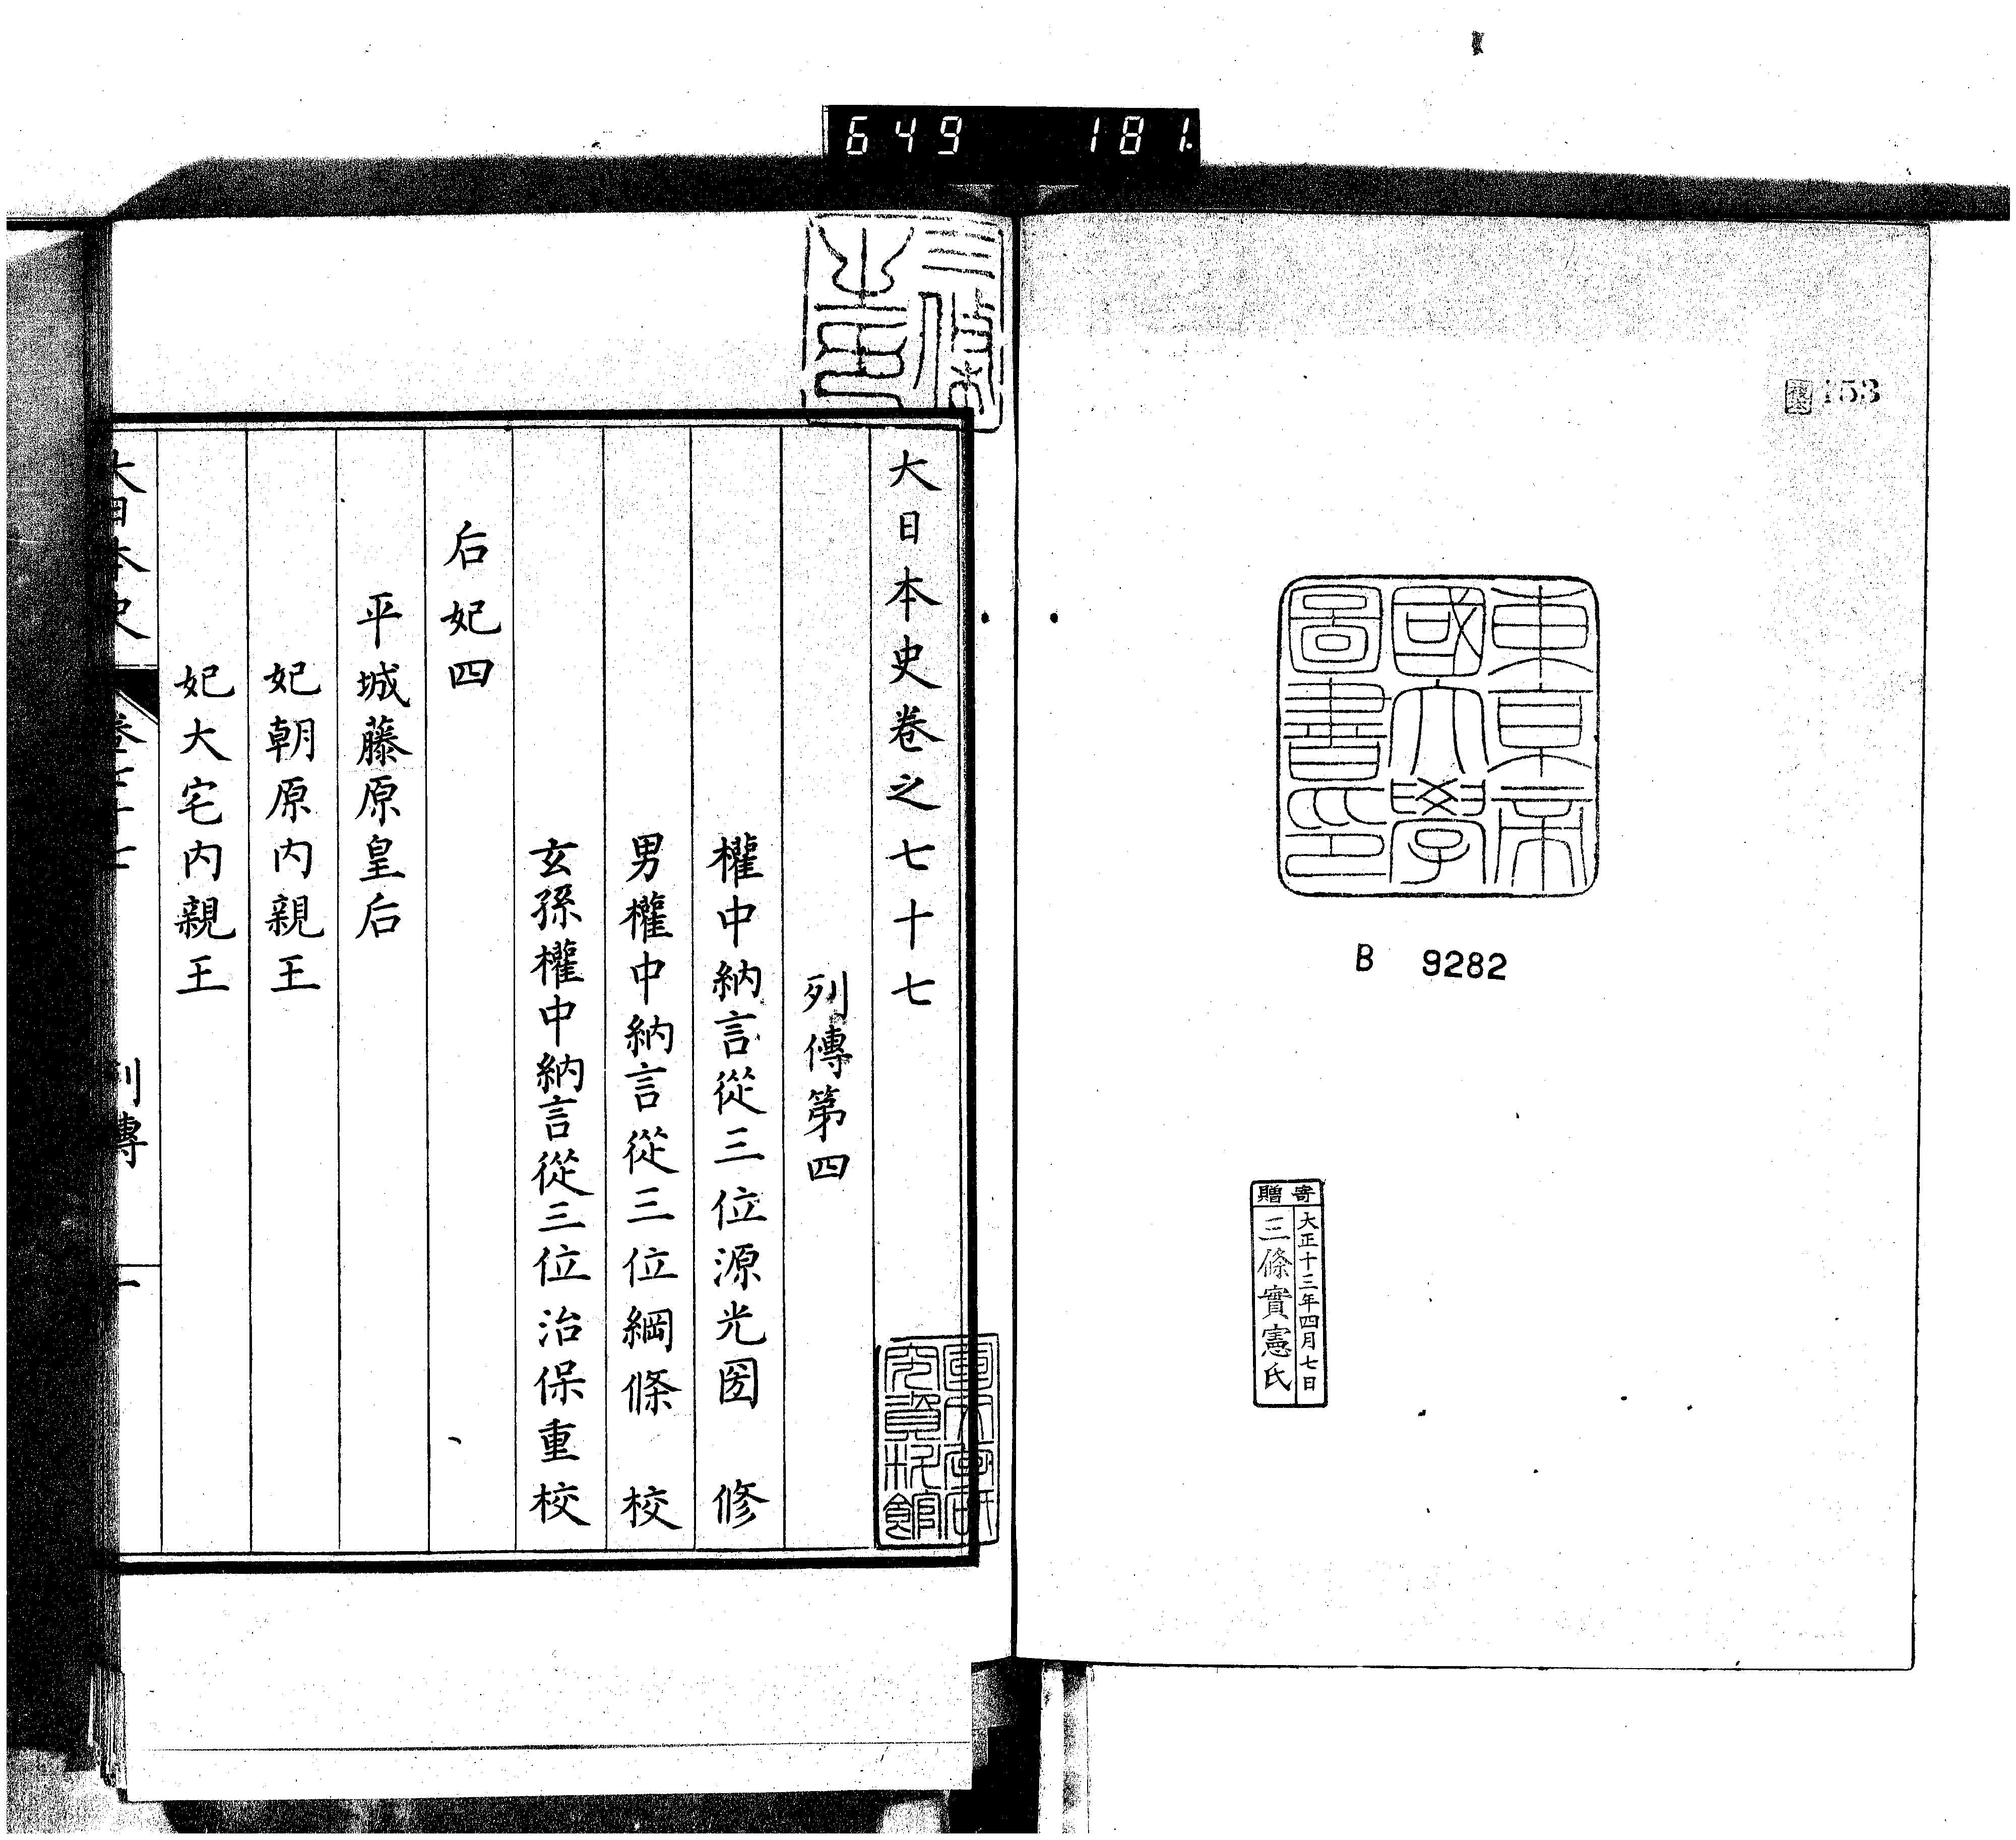 649 181.
153
東京帝
國大學
圖書印
B 9282
寄贈
大正十三年四月七日
三條實憲氏
三條
大日本史卷之七十七
列傳第四
權中納言從三位源光圀 修
男權中納言從三位綱條 校
玄孫權中納言從三位治保重校
后妃四
平城藤原皇后
妃朝原内親王
妃大宅内親王
大日本史 卷七十七 列傳 一